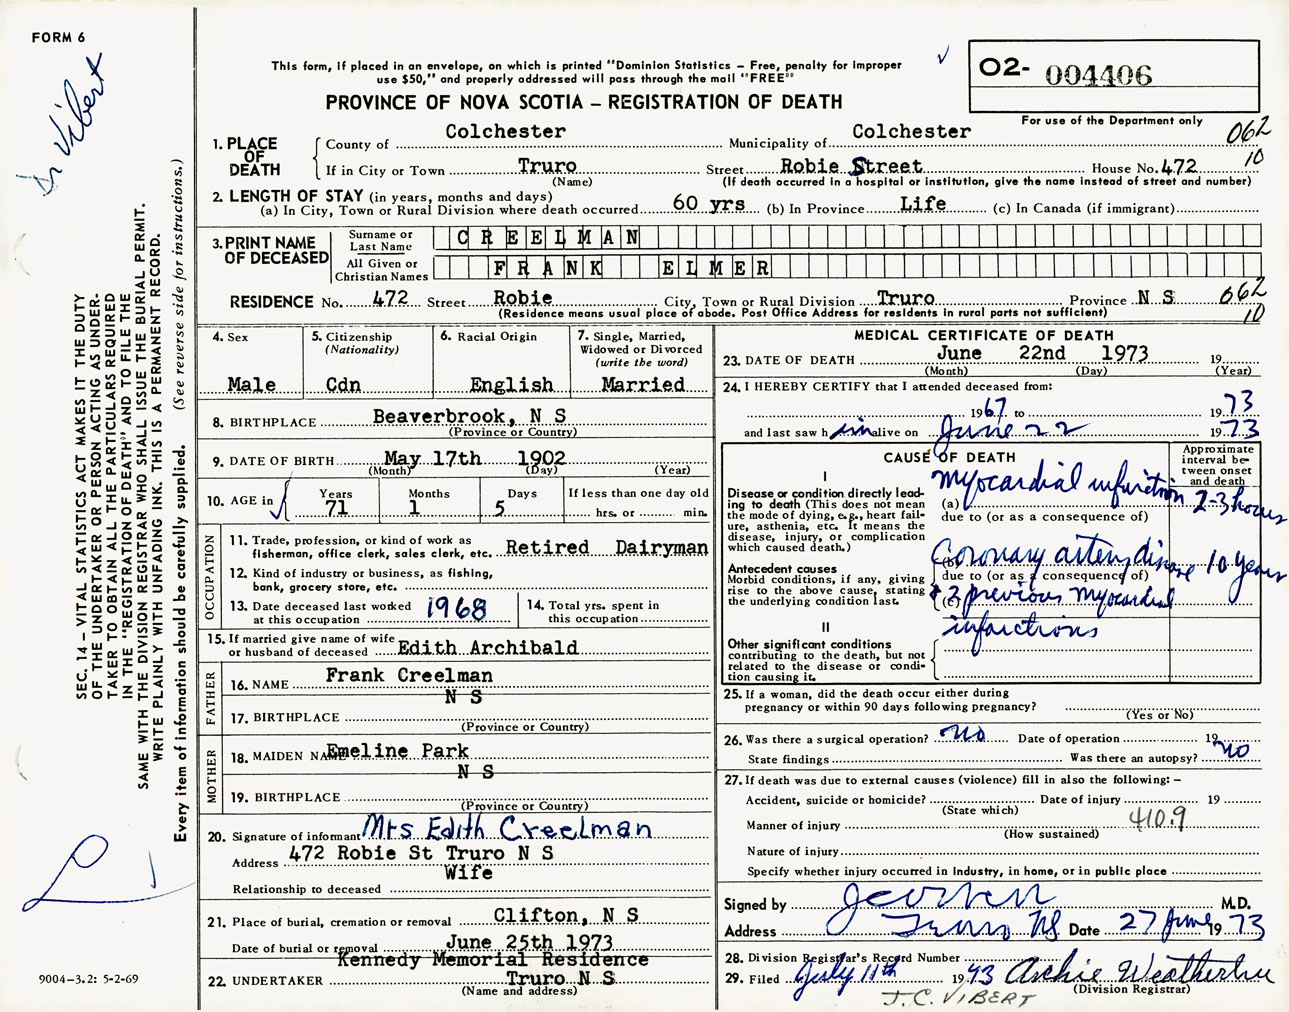 FORM 6
Dr Vibert
This form, if placed in an envelope, on which is printed "Dominion Statistics – Free, penalty for improper
use $50," and properly addressed will pass through the mail "FREE"
PROVINCE OF NOVA SCOTIA – REGISTRATION OF DEATH
02- 004406
For use of the Department only
062
10
1. PLACE OF DEATH
County of Colchester Municipality of Colchester
If in City or Town Truro Street Robie Street House No. 472
(Name) (If death occurred in a hospital or institution, give the name instead of street and number)
2. LENGTH OF STAY (in years, months and days)
(a) In City, Town or Rural Division where death occurred 60 yrs (b) In Province Life (c) In Canada (if immigrant)
3. PRINT NAME OF DECEASED
Surname or Last Name CREELMAN
All Given or Christian Names FRANK ELMER
RESIDENCE No. 472 Street Robie City, Town or Rural Division Truro Province N S 062
(Residence means usual place of abode. Post Office Address for residents in rural parts not sufficient) 10
4. Sex Male
5. Citizenship (Nationality) Cdn
6. Racial Origin English
7. Single, Married, Widowed or Divorced (write the word) Married
8. BIRTHPLACE Beaverbrook, N S
(Province or Country)
9. DATE OF BIRTH May 17th 1902
(Month) (Day) (Year)
10. AGE in Years 71 Months 1 Days 5 If less than one day old hrs. or min.
OCCUPATION
11. Trade, profession, or kind of work as
fisherman, office clerk, sales clerk, etc. Retired Dairyman
12. Kind of industry or business, as fishing,
bank, grocery store, etc.
13. Date deceased last worked
at this occupation 1968
14. Total yrs. spent in
this occupation
15. If married give name of wife
or husband of deceased Edith Archibald
FATHER
16. NAME Frank Creelman
N S
17. BIRTHPLACE
(Province or Country)
MOTHER
18. MAIDEN NAME Emeline Park
N S
19. BIRTHPLACE
(Province or Country)
20. Signature of informant Mrs Edith Creelman
Address 472 Robie St Truro N S
Wife
Relationship to deceased
21. Place of burial, cremation or removal Clifton, N S
Date of burial or removal June 25th 1973
Kennedy Memorial Residence
22. UNDERTAKER Truro N S
(Name and address)
MEDICAL CERTIFICATE OF DEATH
23. DATE OF DEATH June 22nd 1973 19
(Month) (Day) (Year)
24. I HEREBY CERTIFY that I attended deceased from:
1967 to 1973
and last saw him alive on June 22 1973
CAUSE OF DEATH
Approximate interval between onset and death
I
Disease or condition directly lead-
ing to death (This does not mean
the mode of dying, e.g., heart fail-
ure, asthenia, etc. It means the
disease, injury, or complication
which caused death.)
(a) myocardial infarction 2-3 hours
due to (or as a consequence of)
Antecedent causes
Morbid conditions, if any, giving
rise to the above cause, stating
the underlying condition last.
(b) Coronary artery disease 10 years
due to (or as a consequence of)
(c) 3 previous myocardial
infarctions
II
Other significant conditions
contributing to the death, but not
related to the disease or condi-
tion causing it.
25. If a woman, did the death occur either during
pregnancy or within 90 days following pregnancy?
(Yes or No)
26. Was there a surgical operation? no Date of operation 19
State findings Was there an autopsy? no
27. If death was due to external causes (violence) fill in also the following: –
Accident, suicide or homicide? Date of injury 19
(State which)
Manner of injury 410.9
(How sustained)
Nature of injury
Specify whether injury occurred in industry, in home, or in public place
Signed by M.D.
Address Truro NS Date 27 June 1973
28. Division Registrar's Record Number
29. Filed July 11th 1973 Archie Weatherbee
(Division Registrar)
J.C. VIBERT
SEC. 14 – VITAL STATISTICS ACT MAKES IT THE DUTY
OF THE UNDERTAKER OR PERSON ACTING AS UNDER-
TAKER TO OBTAIN ALL THE PARTICULARS REQUIRED
IN THE "REGISTRATION OF DEATH" AND TO FILE THE
SAME WITH THE DIVISION REGISTRAR WHO SHALL ISSUE THE BURIAL PERMIT.
WRITE PLAINLY WITH UNFADING INK. THIS IS A PERMANENT RECORD.
Every item of information should be carefully supplied. (See reverse side for instructions.)
9004–3.2: 5-2-69